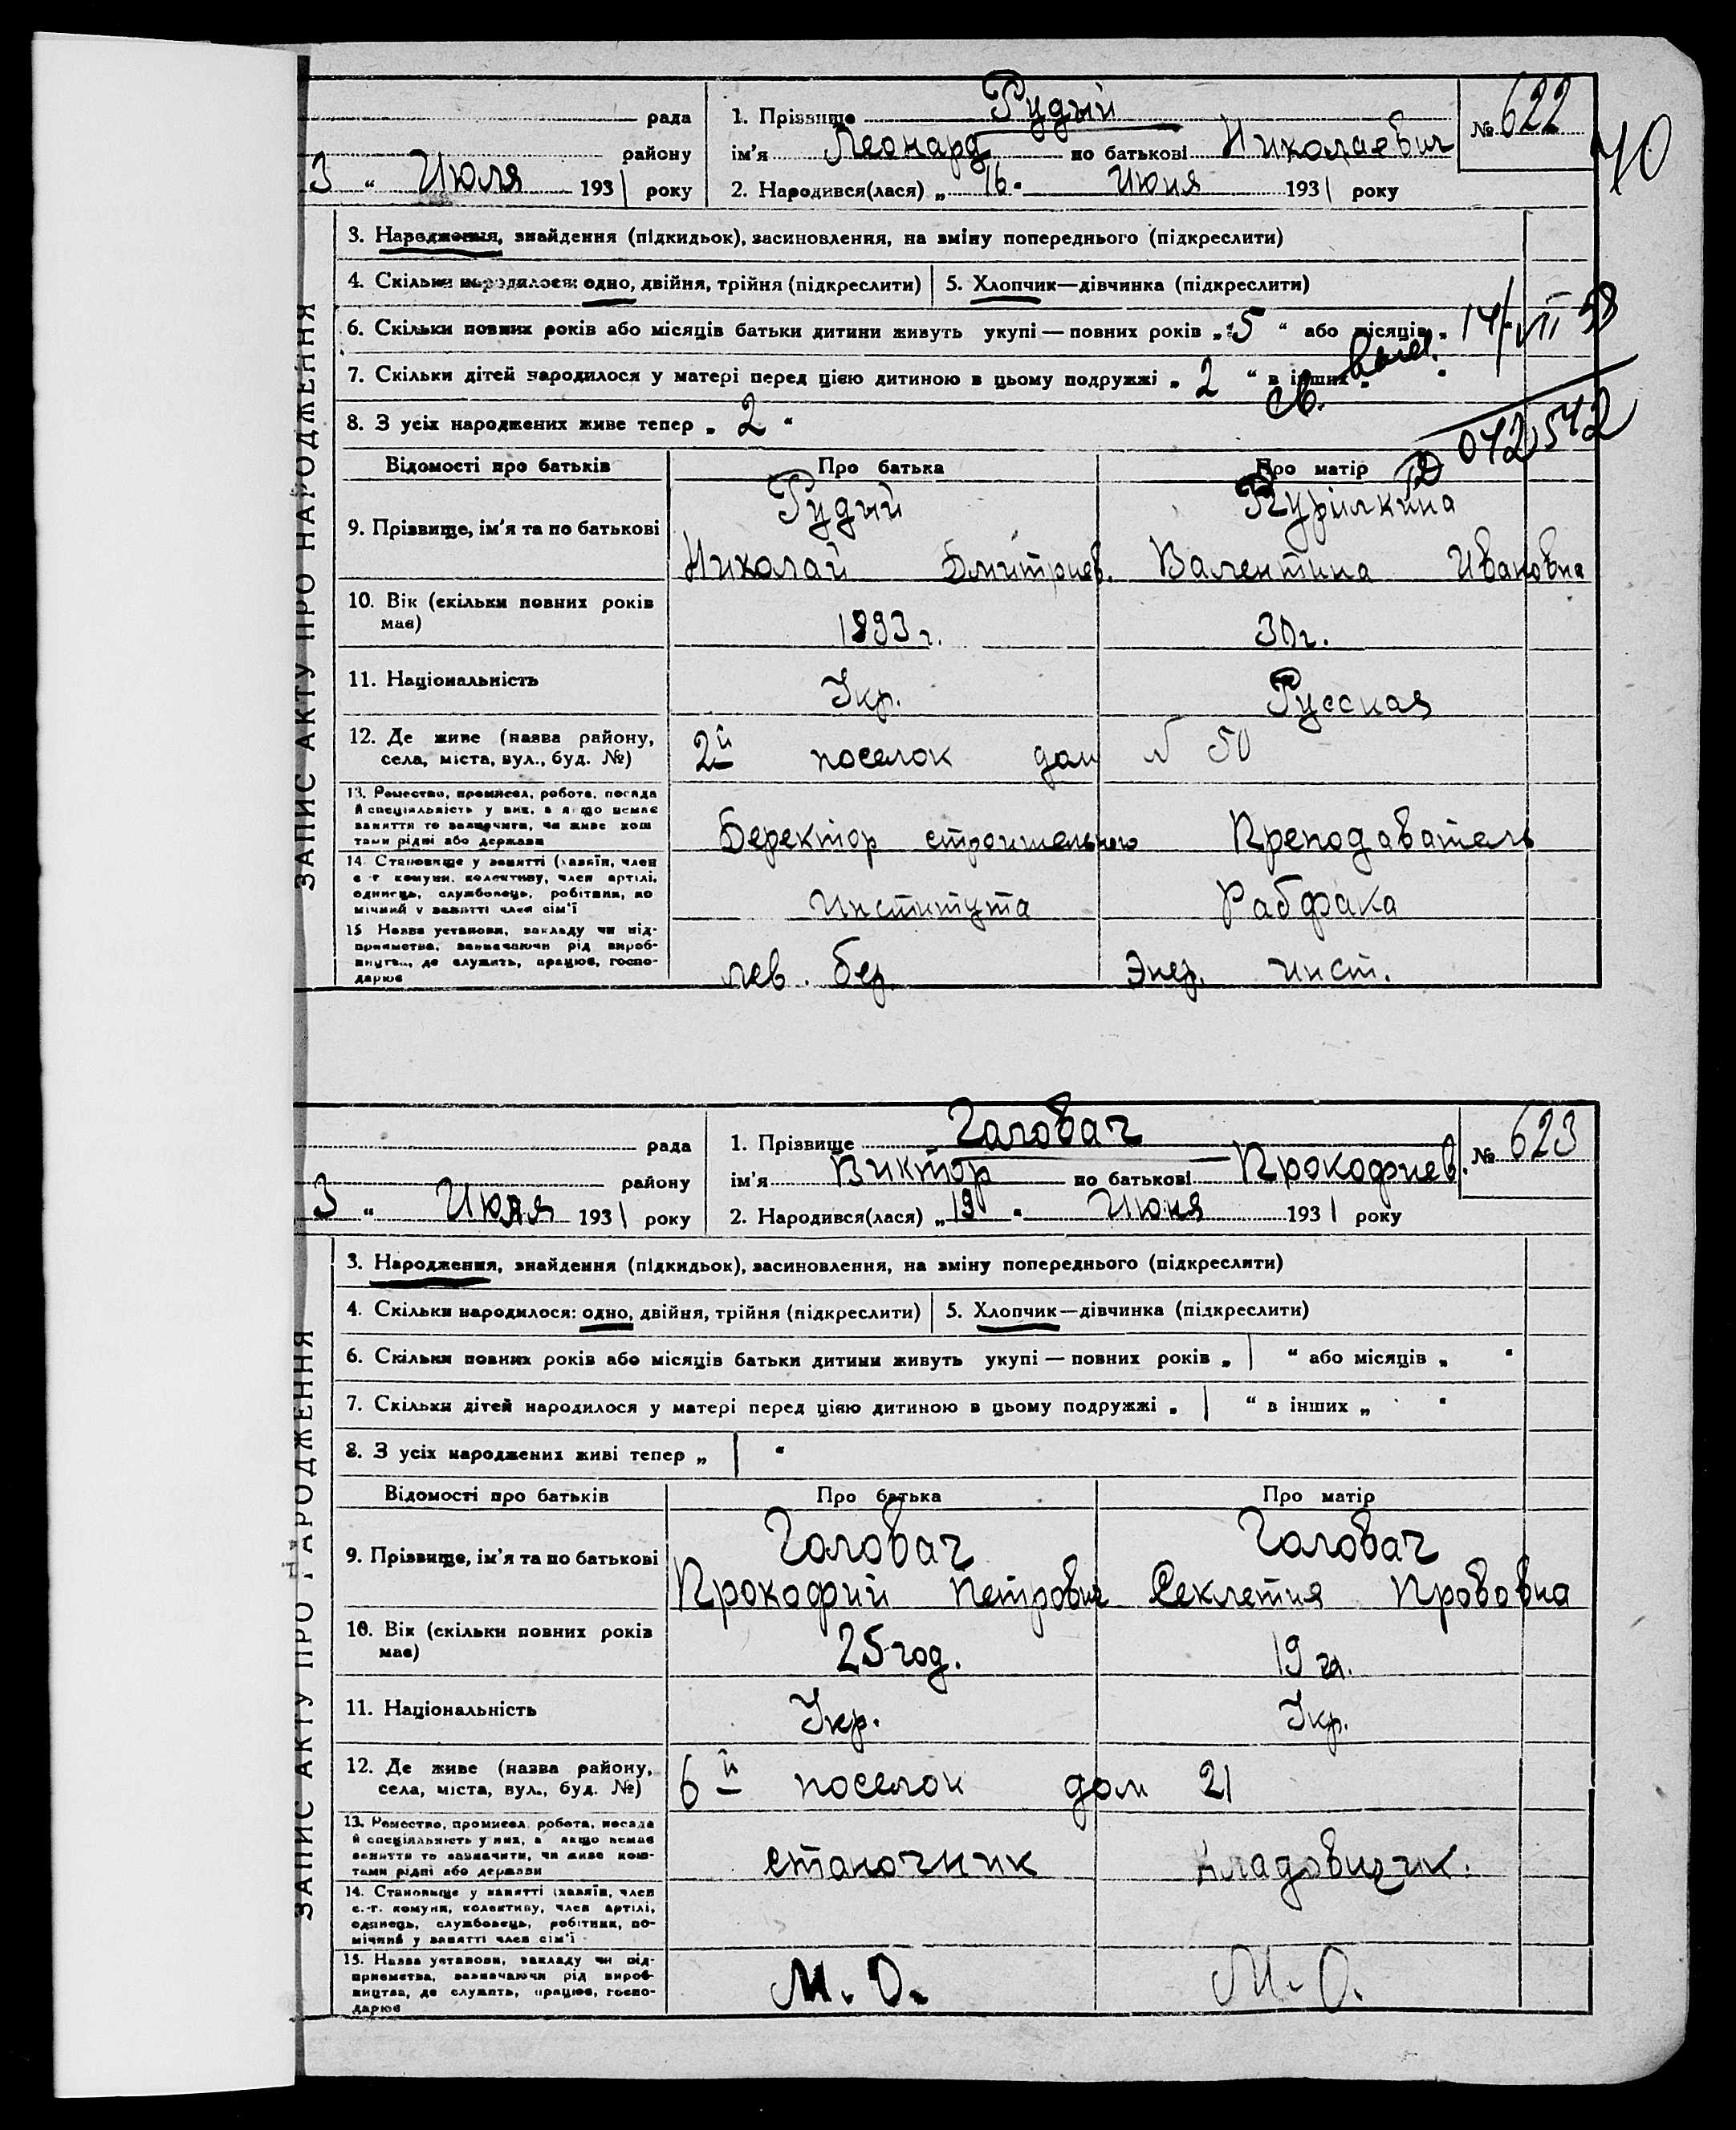 рада
району
3 " Июля 1931 року
1. Прізвище Рудый
ім'я Леонард по батькові Николаевич
2. Народився(лася) „ 16 " Июня 1931 року
№ 622
70
ЗАПИС АКТУ ПРО НАРОДЖЕННЯ
3. Народження, знайдення (підкидьок), засиновлення, на зміну попереднього (підкреслити)
4. Скільки народилося: одно, двійня, трійня (підкреслити) 5. Хлопчик—дівчинка (підкреслити)
6. Скільки повних років або місяців батьки дитини живуть укупі — повних років „ 5 " або місяців „
14/VII 58
7. Скільки дітей народилося у матері перед цією дитиною в цьому подружжі „ 2 " в інших „ "
св. выд.
8. З усіх народжених живе тепер „ 2 "
042542
Відомості про батьків Про батька Про матір
9. Прізвище, ім'я та по батькові
Рудый Курилкина
Николай Дмитриев. Валентина Ивановна
10. Вік (скільки повних років має)
1893 г. 30 г.
11. Національність Укр. Русская
12. Де живе (назва району, села, міста, вул., буд. №)
2й поселок дом № 50
13. Ремество, промисел, робота, посада
й спеціяльність у них, а якщо немає
заняття то зазначити, чи живе кош
тами рідні або держави
Деректор строительного Преподаватель
14. Становище у занятті (хазяїн, член
с.-г. комуни, колективу, член артілі,
одинець, службовець, робітник, по
мічний у занятті член сім'ї
Института Рабфака
15. Назва установи, закладу чи під-
приємства, зазначаючи рід вироб-
ництва, де служить, працює, госпо-
дарює
лев. бер. Энер. инст.
рада
району
3 " Июля 1931 року
1. Прізвище Головач
ім'я Виктор по батькові Прокофиев.
2. Народився(лася) „ 19 " Июня 1931 року
№ 623
ЗАПИС АКТУ ПРО НАРОДЖЕННЯ
3. Народження, знайдення (підкидьок), засиновлення, на зміну попереднього (підкреслити)
4. Скільки народилося: одно, двійня, трійня (підкреслити) 5. Хлопчик—дівчинка (підкреслити)
6. Скільки повних років або місяців батьки дитини живуть укупі — повних років „ 1 " або місяців „ "
7. Скільки дітей народилося у матері перед цією дитиною в цьому подружжі „ 1 " в інших „ "
8. З усіх народжених живі тепер „ 1 "
Відомості про батьків Про батька Про матір
9. Прізвище, ім'я та по батькові
Головач Головач
Прокофий Петрович Секлетия Прововна
10. Вік (скільки повних років має)
25 год. 19 гл.
11. Національність Укр. Укр.
12. Де живе (назва району, села, міста, вул., буд. №)
6й поселок дом 21
13. Ремество, промисел, робота, посада
й спеціяльність у них, а якщо немає
заняття то зазначити, чи живе кош-
тами рідні або держави
станочник кладовщик.
14. Становище у занятті (хазяїн, член
с.-г. комуни, колективу, член артілі,
одинець, службовець, робітник, по-
мічний у занятті член сім'ї
15. Назва установи, закладу чи під-
приємства, зазначаючи рід вироб-
ництва, де служить, працює, госпо-
дарює
М. О. М. О.